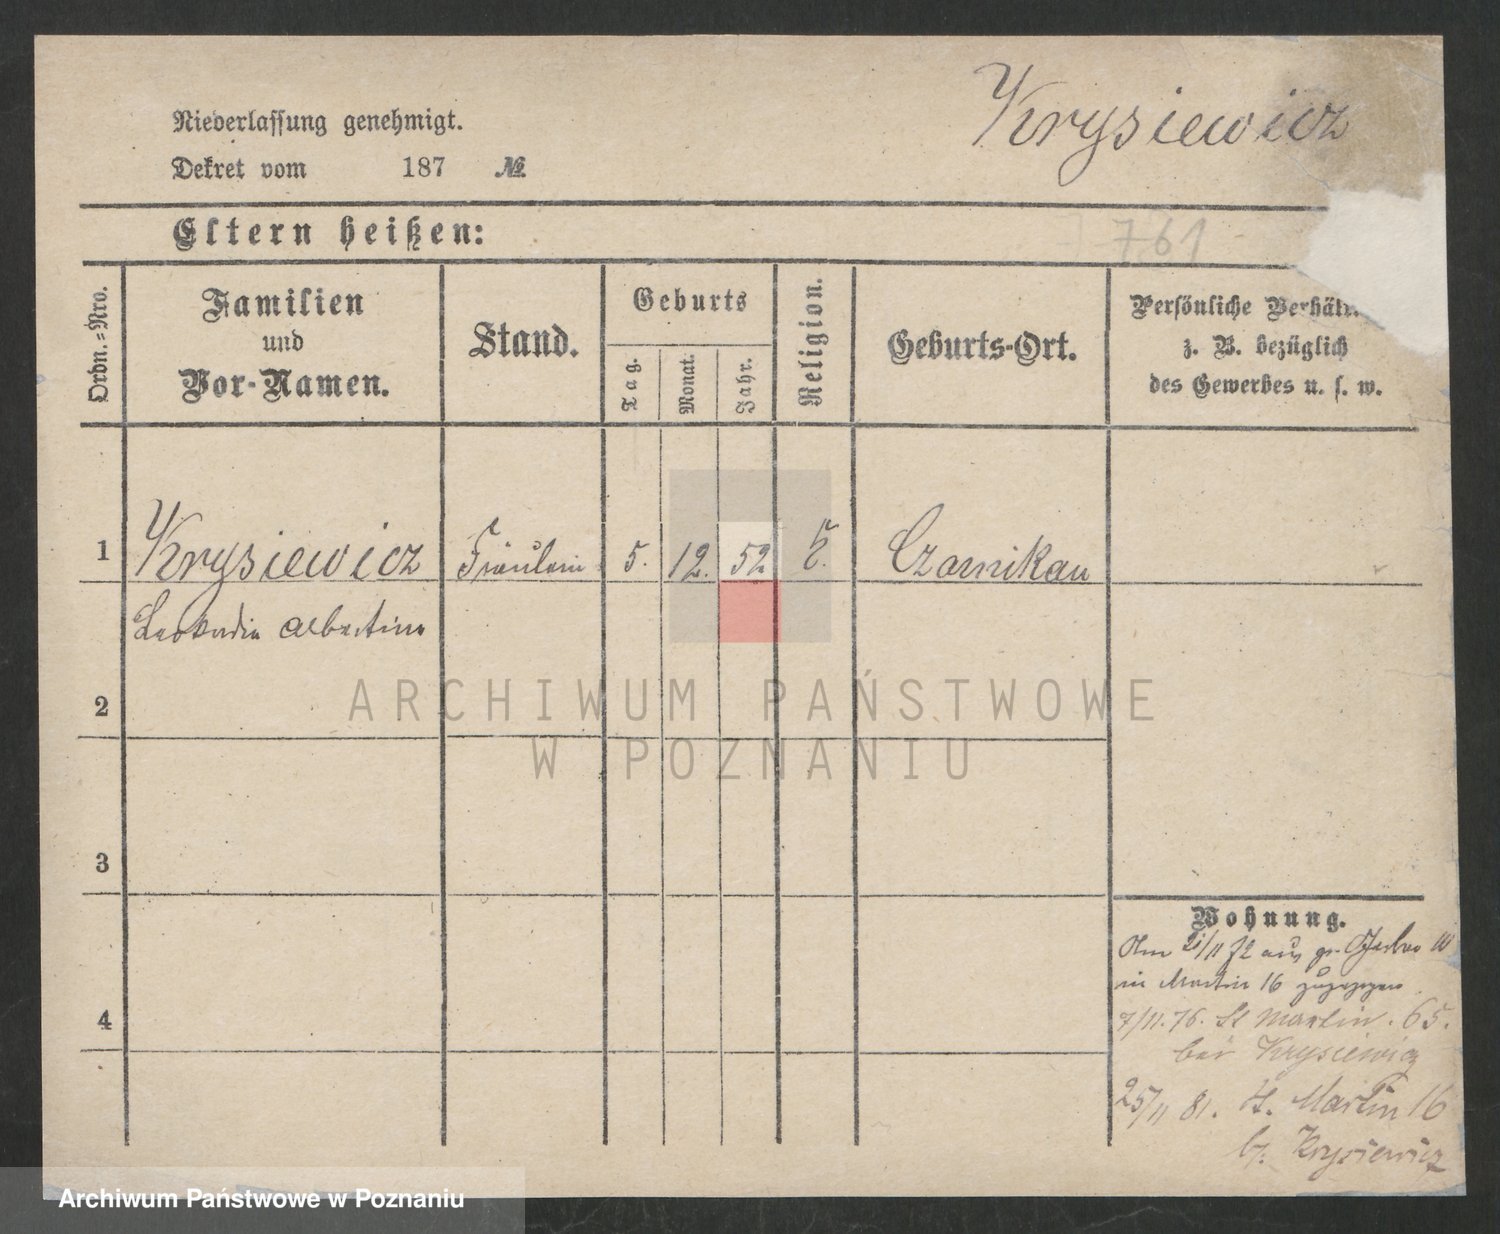 Krysiewicz
Niederlassung genehmigt.
Dekret vom 187 №
Eltern heißen:
761
Ordn.=Nro.
Familien
und
Vor-Namen.
Stand.
Geburts
Tag.
Monat.
Jahr.
Religion.
Geburts-Ort.
Persönliche Verhält
z. B. bezüglich
des Gewerbes u. s. w.
1 Krysiewicz Fräulein 5. 12. 52 Czarnikau
Leokadia Albertine
2
3
4
Wohnung.
Am 21/11 72 aus gr. Gerber 10
in Martin 16 zugezogen
7/11. 76. St Martin. 65.
bei Krysiewicz
25/11 81. St. Martin 16
b. Krysiewicz
ARCHIWUM PAŃSTWOWE
W POZNANIU
Archiwum Państwowe w Poznaniu